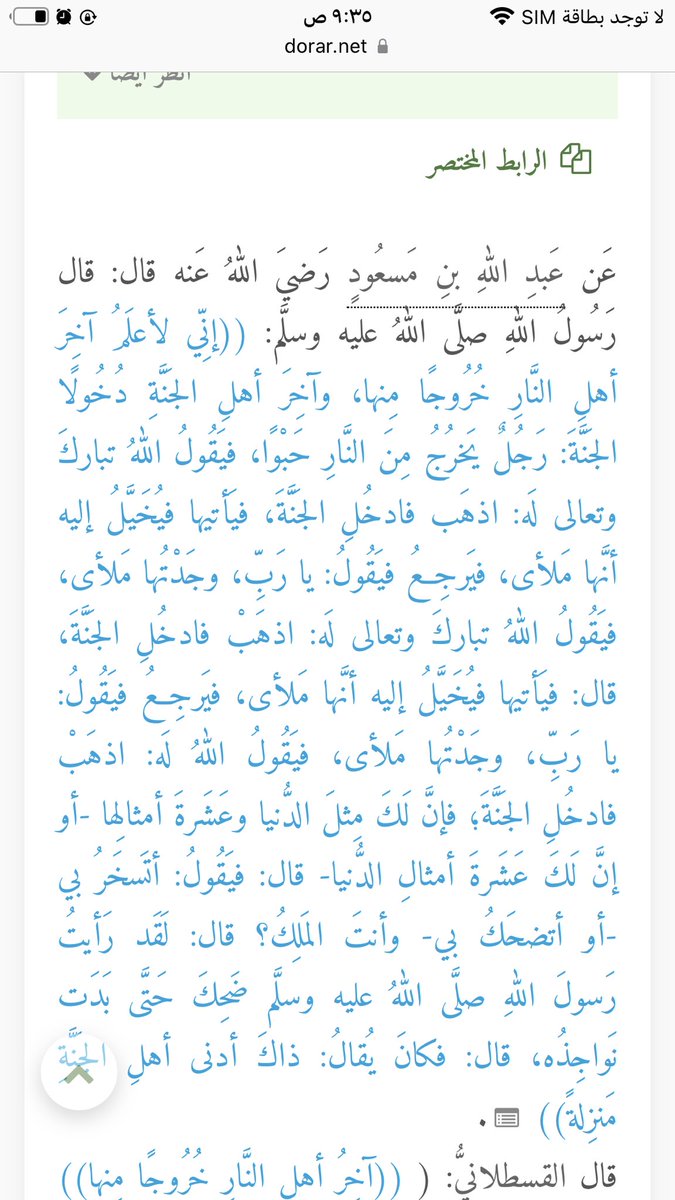 لا توجد بطاقة SIM ٩:٣٥ ص
dorar.net
انظر أيضا
الرابط المختصر
عَن عَبدِ اللهِ بنِ مَسعُودٍ رَضيَ اللهُ عَنه قال: قال
رَسُولُ اللهِ صلَّى اللهُ عليه وسلَّم: ((إنِّي لأعلَمُ آخِرَ
أهلِ النَّارِ خُرُوجًا مِنها، وآخِرَ أهلِ الجَنَّةِ دُخُولًا
الجَنَّةَ: رَجُلٌ يَخرُجُ مِنَ النَّارِ حَبْوًا، فيَقُولُ اللهُ تباركَ
وتعالى لَه: اذهَب فادخُلِ الجَنَّةَ، فيَأتيها فيُخَيَّلُ إليه
أنَّها مَلأى، فيَرجِعُ فيَقُولُ: يا رَبِّ، وجَدْتُها مَلأى،
فيَقُولُ اللهُ تباركَ وتعالى لَه: اذهَبْ فادخُلِ الجَنَّةَ،
قال: فيَأتيها فيُخَيَّلُ إليه أنَّها مَلأى، فيَرجِعُ فيَقُولُ:
يا رَبِّ، وجَدْتُها مَلأى، فيَقُولُ اللهُ لَه: اذهَبْ
فادخُلِ الجَنَّةَ؛ فإنَّ لَكَ مِثلَ الدُّنيا وعَشَرةَ أمثالِها -أو
إنَّ لَكَ عَشَرةَ أمثالِ الدُّنيا- قال: فيَقُولُ: أتَسخَرُ بي
-أو أتضحَكُ بي- وأنتَ المَلِكُ؟ قال: لَقَد رَأيتُ
رَسولَ اللهِ صلَّى اللهُ عليه وسلَّم ضَحِكَ حَتَّى بَدَت
نَواجِذُه، قال: فكانَ يُقالُ: ذاكَ أدنى أهلِ الجَنَّةِ
مَنزِلةً)) .
قال القسطلانيُّ: ( ((آخِرُ أهلِ النَّارِ خُرُوجًا مِنها))